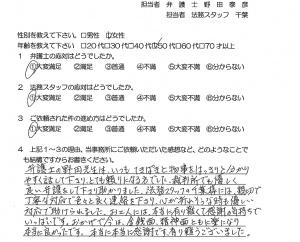 担当者 弁護士 野田 泰彦
担当者 法務スタッフ 千葉
性別を教えて下さい。□男性 □女性
年齢を教えて下さい □20代□30代□40代□50代□60代□70才以上
1 弁護士の応対はどうでしたか。
①大変満足 ②満足 ③普通 ④不満 ⑤大変不満 ⑥分からない
2 法務スタッフの応対はどうでしたか。
①大変満足 ②満足 ③普通 ④不満 ⑤大変不満 ⑥分からない
3 ご依頼された件の進め方はどうでしたか。
①大変満足 ②満足 ③普通 ④不満 ⑤大変不満 ⑥分からない
4 上記1~3の理由、当事務所にご依頼いただいた感想など、どのようなことで
も結構ですからお書きください。
弁護士の野田先生は、いつもはきはきと物事をはっきりと分かり
やすく話して下さりとても頼りになる先生でした。裁判所でも優しく
良い弁護をして下さり助かりました。法務スタッフの千葉様には、親切で
丁寧な対応で色々と良く連絡を下さり、心が折れそうな時も優しい
対応で助けられました。お二人には、本当に有り難く感謝の気持ちで
いっぱいです。おかげで今は、金銭面、精神面ともに楽になり
本当に良かったです。本当に本当に感謝です。有り難うございました。